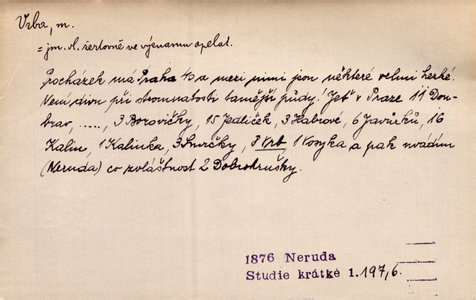 Vrba, m.
= jm. vl. žertovně ve významu apelat.
Procházek má Praha 43 a mezi nimi jsou některé velmi hezké.
Není divu při stromnatosti tamější půdy! Jeť v Praze 11 Dou-
brav, ....., 3 Borovičky, 15 Jedliček, 3 Habrové, 6 Javůrků, 16
Kalin, 1 Kalinka, 3 Smrčky, 8 Vrb 1 Vosyka a pak uvádím
(Neruda) co zvláštnost 2 Dobrohrušky.
1876 Neruda
Studie krátké 1.197,6.